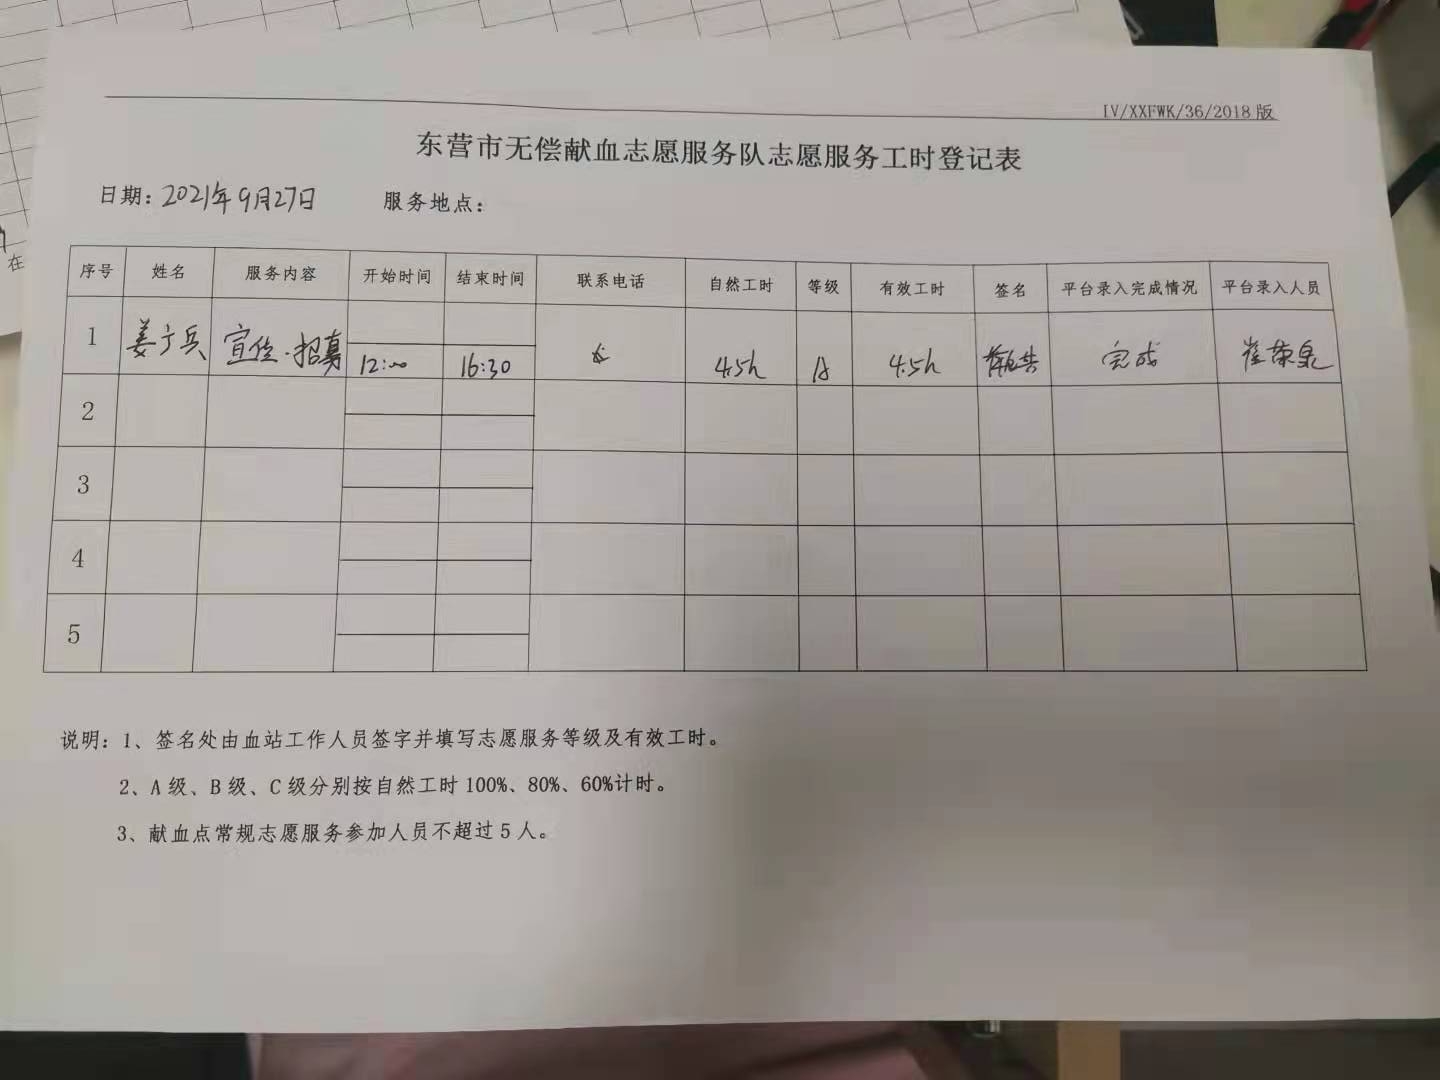 IV/XXFWK/36/2018版
东营市无偿献血志愿服务队志愿服务工时登记表
日期：2021年9月27日 服务地点：
序号 姓名 服务内容 开始时间 结束时间 联系电话 自然工时 等级 有效工时 签名 平台录入完成情况 平台录入人员
1 姜宁兵 宣传·招募 12:00 16:30 4.5h A 4.5h 完成 崔荣泉
2
3
4
5
说明：1、签名处由血站工作人员签字并填写志愿服务等级及有效工时。
2、A级、B级、C级分别按自然工时100%、80%、60%计时。
3、献血点常规志愿服务参加人员不超过5人。
在